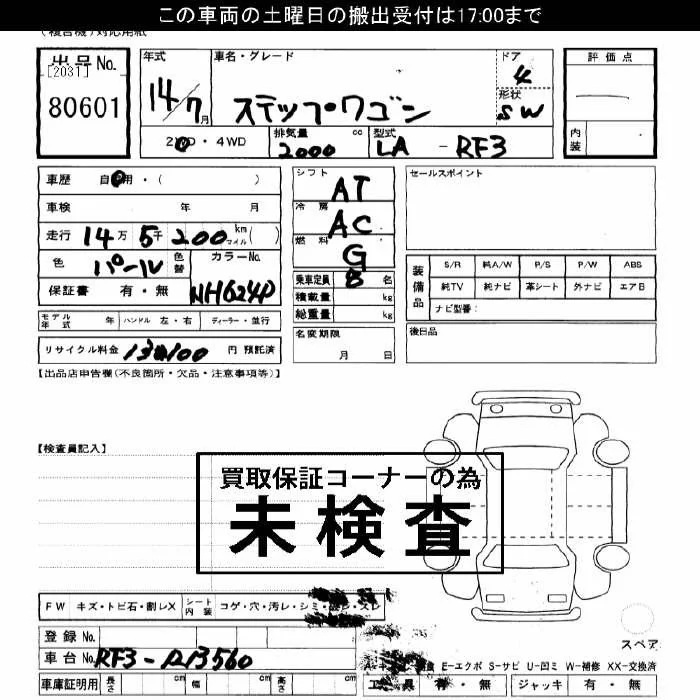 この車両の土曜日の搬出受付は17:00まで
出品No.
[2031]
80601
年式 14/7月
車名・グレード ステップワゴン
ドア 4
形状 SW
評価点
内装
2WD・4WD
排気量 2000 cc
型式 LA - RF3
車歴 自家用・( )
車検 年 月
走行 14万 5千 200 km マイル ( )
色 パール 色替 カラーNo. NH624P
保証書 有・無
モデル年式 年 ハンドル 左・右 ディーラー・並行
リサイクル料金 円 預託済
シフト AT
冷房 AC
燃料 G
乗車定員 8 名
積載量 kg
総重量 kg
名変期限 月 日
セールスポイント
装備品 S/R 純A/W P/S P/W ABS
純TV 純ナビ 革シート 外ナビ エアB
ナビ型番:
後日品
【出品店申告欄(不良箇所・欠品・注意事項等)】
【検査員記入】
買取保証コーナーの為
未検査
FW キズ・トビ石・割レX シート内装 コゲ・穴・汚レ・シミ
スペア
登録No.
車台No. RF3-
E-エクボ S-サビ U-凹ミ W-補修 XX-交換済
車庫証明用 長さ cm 幅 cm 高さ cm
工具 有・無 ジャッキ 有・無